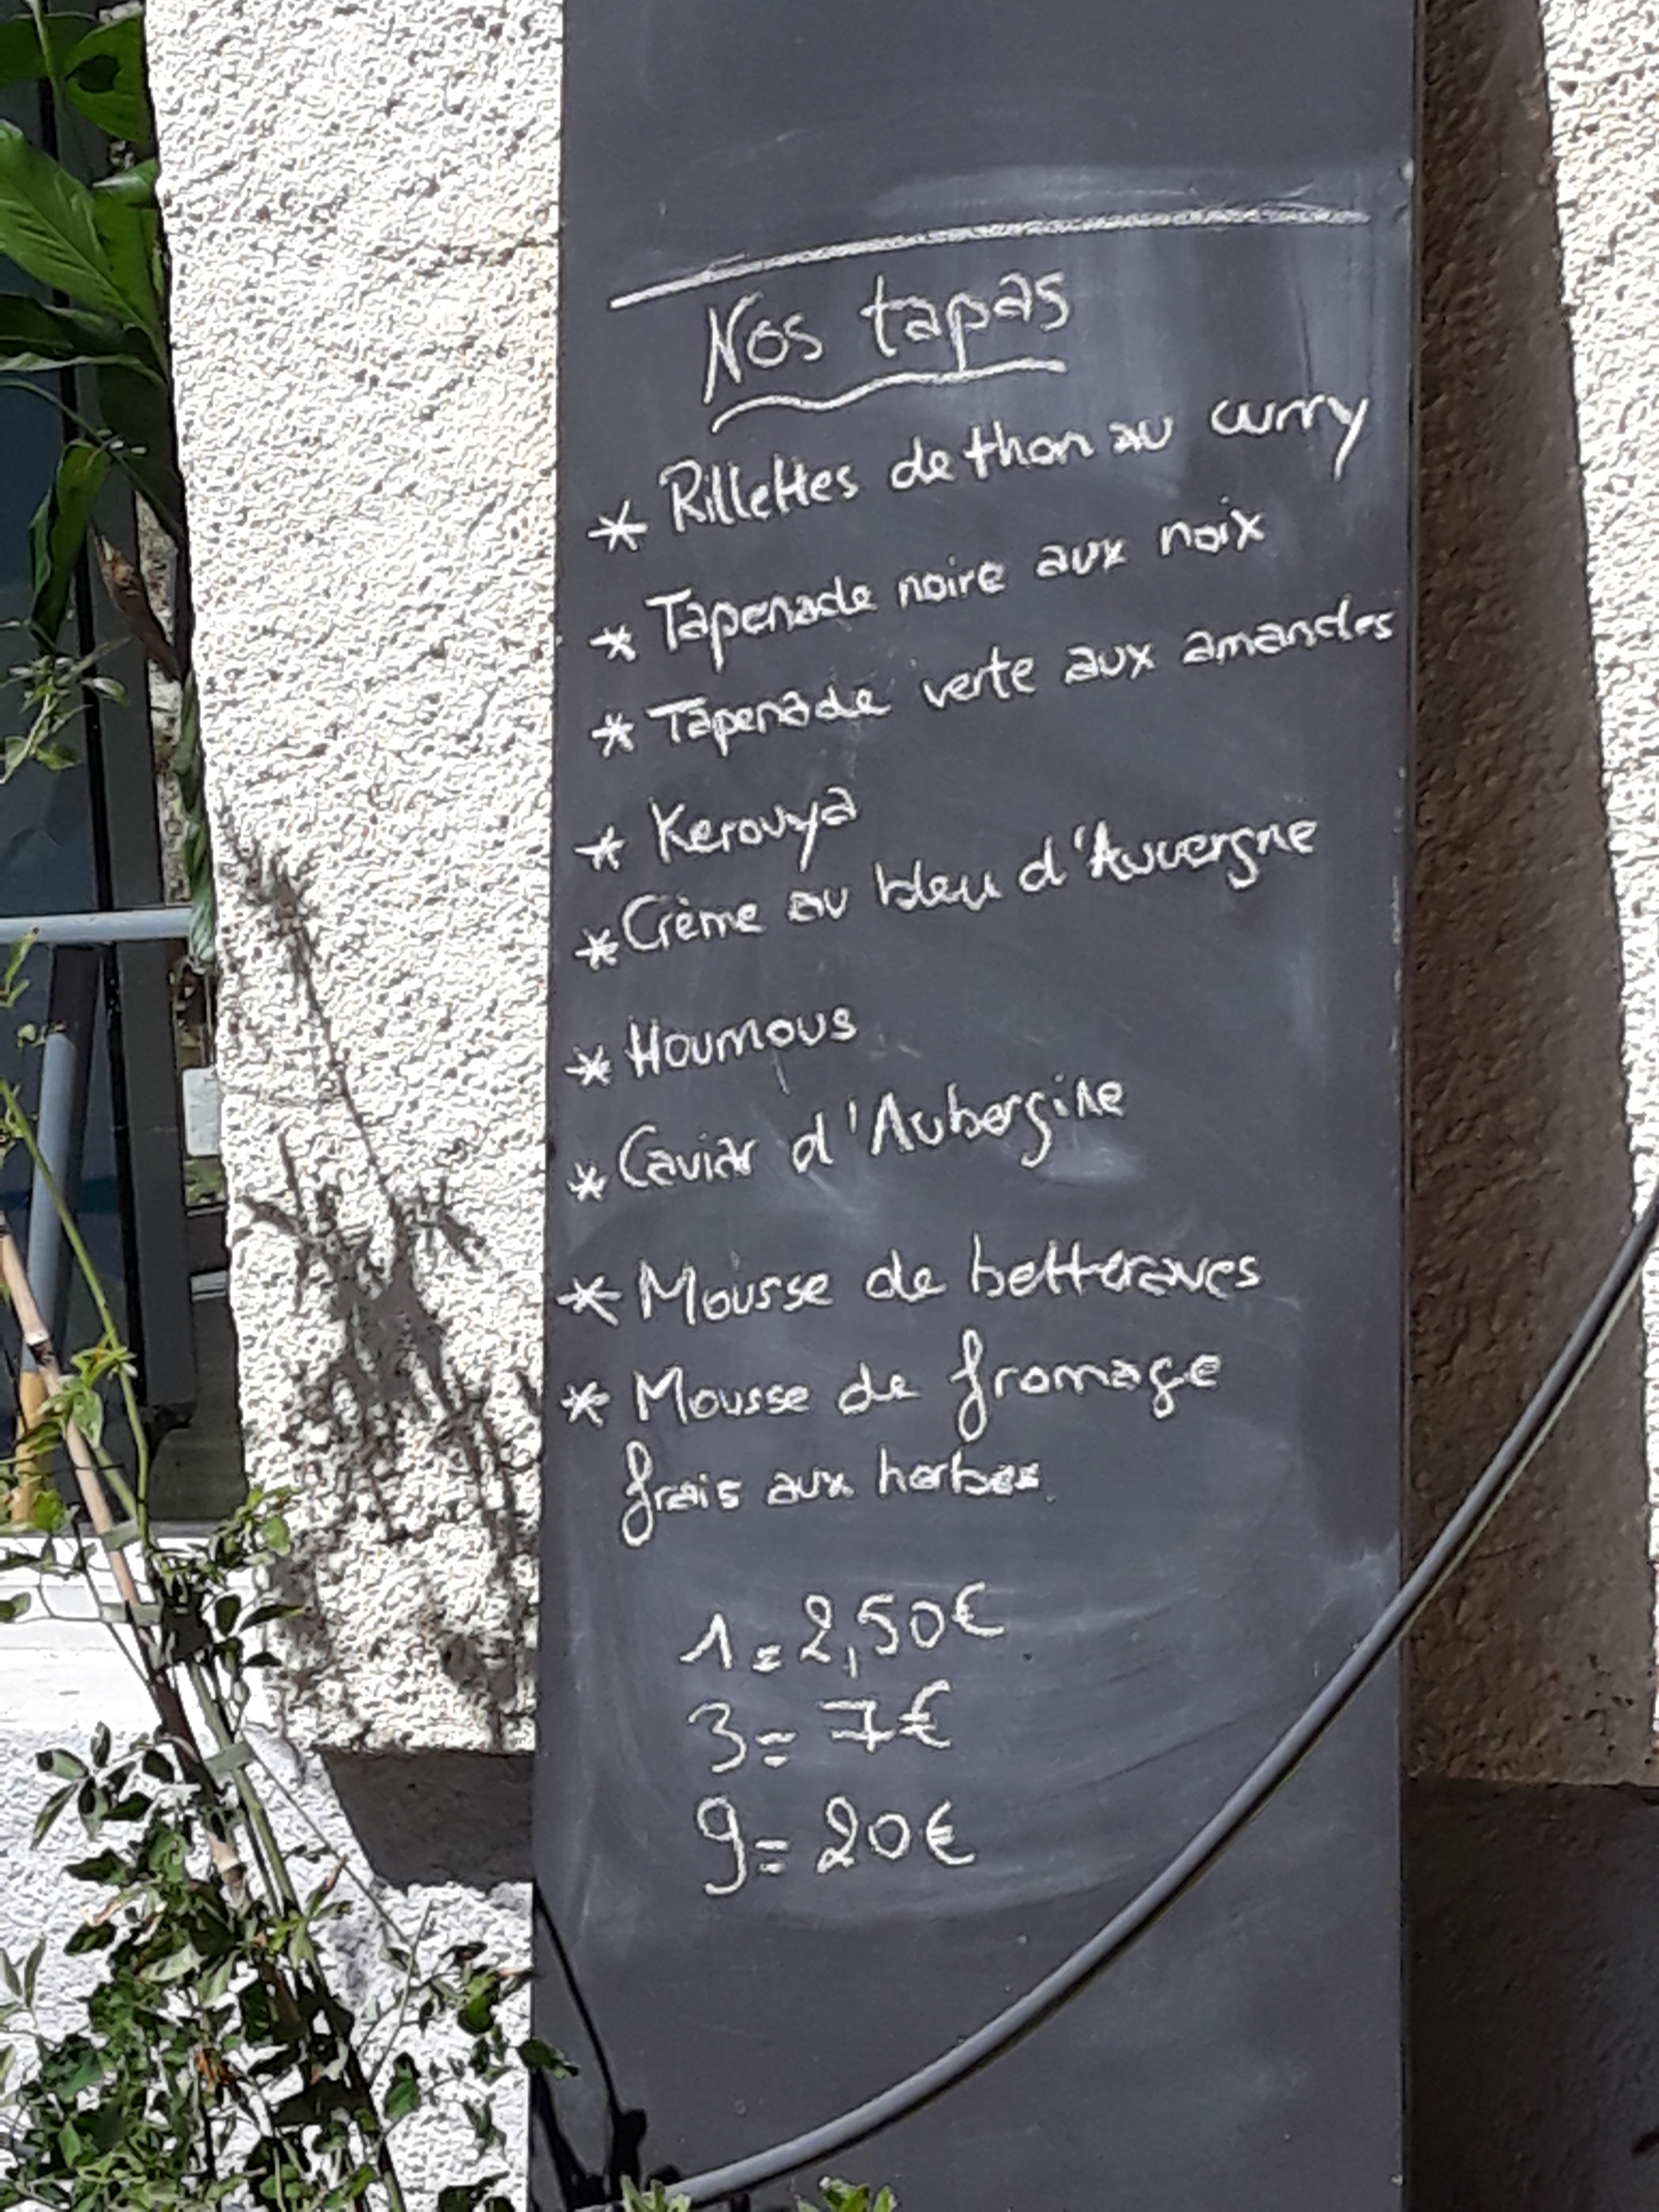 Nos tapas
* Rillettes de thon au curry
* Tapenade noire aux noix
* Tapenade verte aux amandes
* Kerouya
* Crème au bleu d'Auvergne
* Houmous
* Caviar d'Aubergine
* Mousse de betteraves
* Mousse de fromage
frais aux herbes.
1 = 2,50€
3 = 7€
9 = 20€